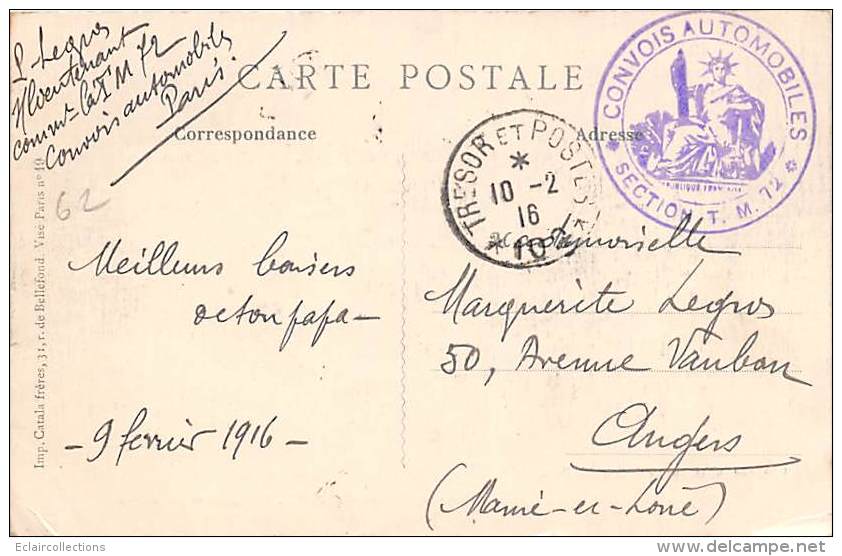 L Legros
s/lieutenant
commt la T M 72
Convois automobiles
Paris.
CARTE POSTALE
Correspondance
Adresse
* CONVOIS AUTOMOBILES *
SECTION T. M. 72
TRESOR ET POSTES
*
10 -2
16
62
Mademoiselle
Marguerite Legros
50, Avenue Vauban
Angers
(Maine-et-Loire)
Meilleurs baisers
de ton papa—
- 9 février 1916 -
Imp. Catala frères, 31, r. de Bellefond. Visé Paris nº
Eclaircollections
www.delcampe.net